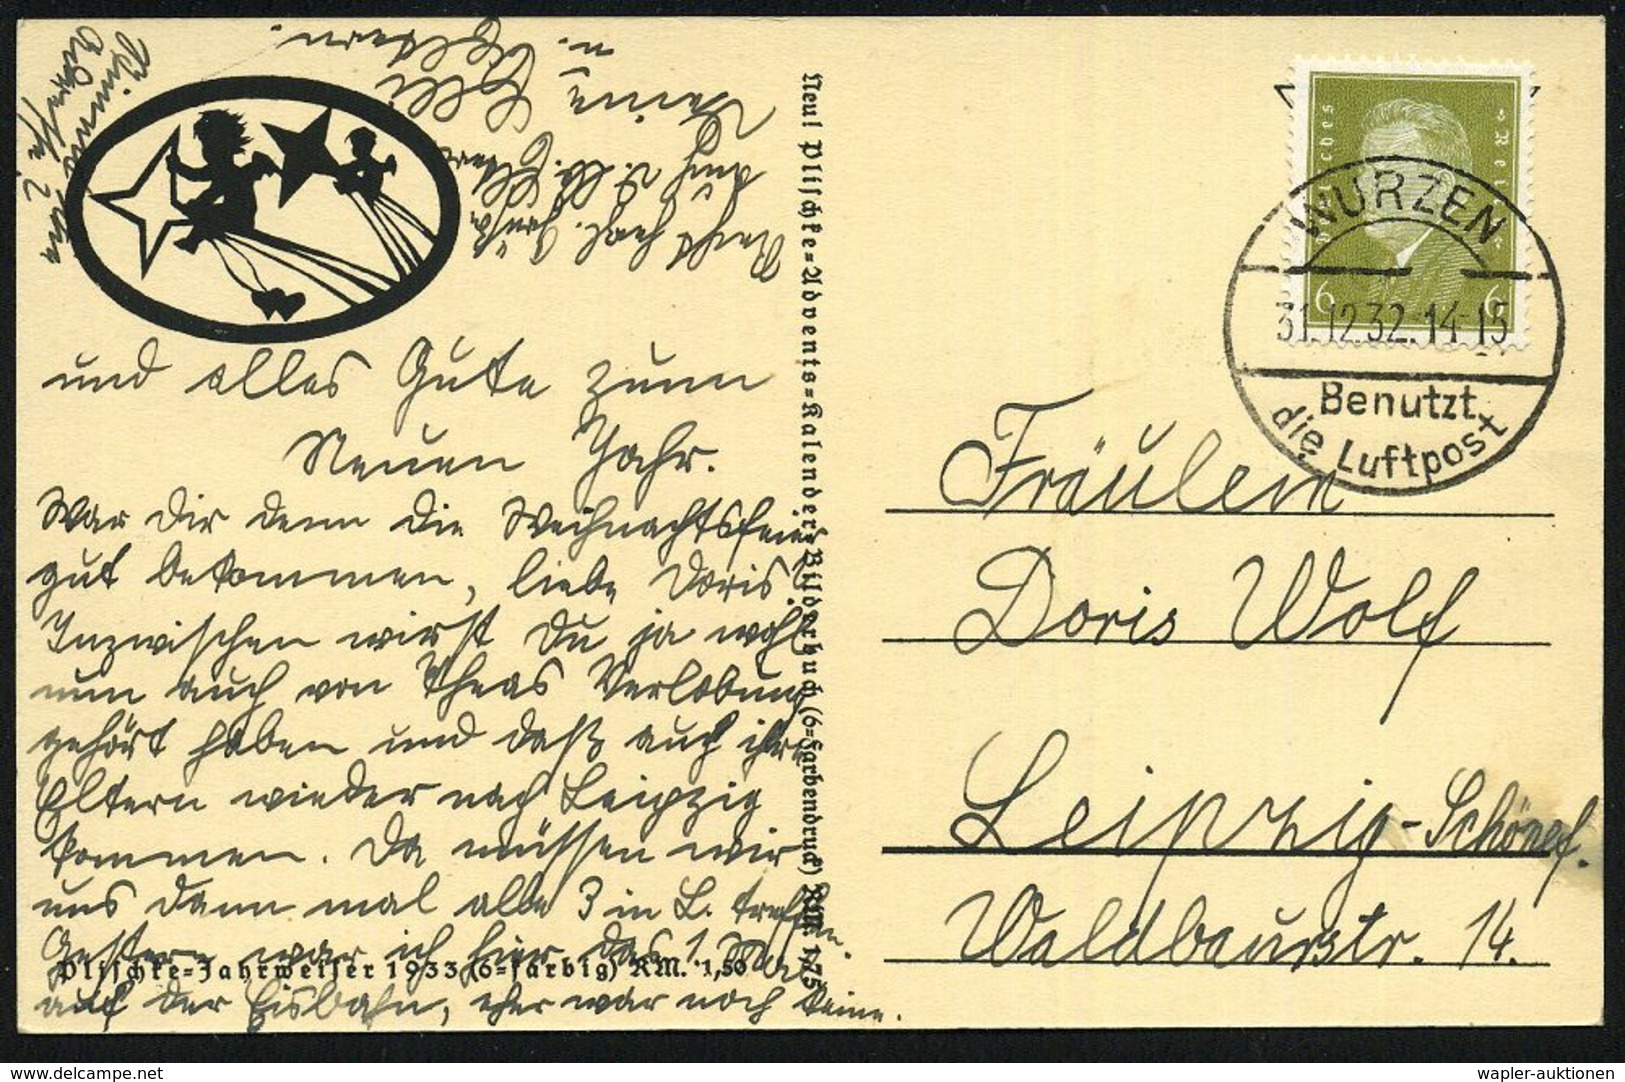 und alles Gute zum
Neuen Jahr.
War dir denn die Weihnachtsfeier
gut bekommen, liebe Doris?
Inzwischen wirst Du ja wohl
nun auch von Theas Verlobung
gehört haben und daß auch ihre
Eltern wieder nach Leipzig
kommen. Da müssen wir
uns dann mal alle 3 in L. treffen.
Gestern war ich hier das 1. Mal
auf der Eisbahn, eher war noch keine.
Recht herzl. Grüße
auch v. m. Eltern
Deine Elli
u. Eltern.
Plischke=Jahrweiser 1933 (6=farbig) RM. 1,50
Neu! Plischke=Advents=Kalender=Bilderbuch (6=Farbendruck) RM. 1,75
Deutsches Reich
6 6
WURZEN
31.12.32.14-15
Benutzt
die Luftpost
Fräulein
Doris Wolf
Leipzig-Schönef.
Waldbaurstr. 14.
delcampe.net
wapler-auktionen